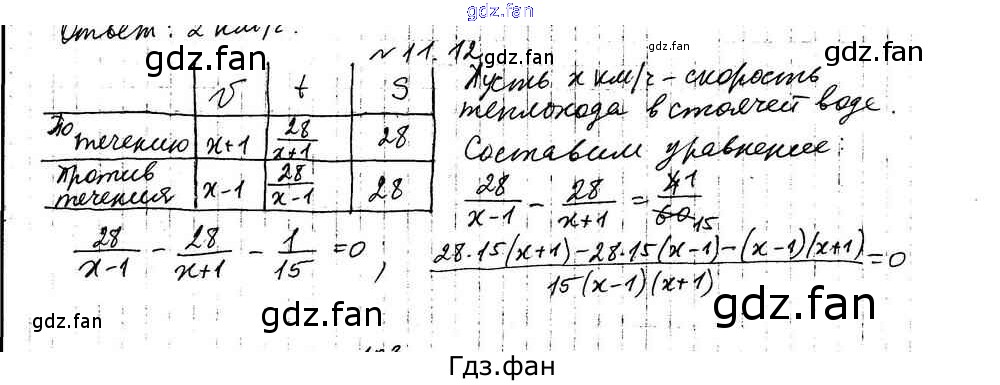 gdz.fan
Ответ: 2 км/с.
gdz.fan
№ 11.12
gdz.fan
gdz.fan
v t S
По течению x+1 28/(x+1) 28
Против течения x-1 28/(x-1) 28
Пусть x км/ч - скорость
теплохода в стоячей воде.
Составим уравнение:
28/(x-1) - 28/(x+1) = 4 1/60 15
28/(x-1) - 28/(x+1) - 1/15 = 0;
(28·15(x+1)-28·15(x-1)-(x-1)(x+1))/(15(x-1)(x+1)) = 0
gdz.fan
gdz.fan
gdz.fan
Гдз.фан